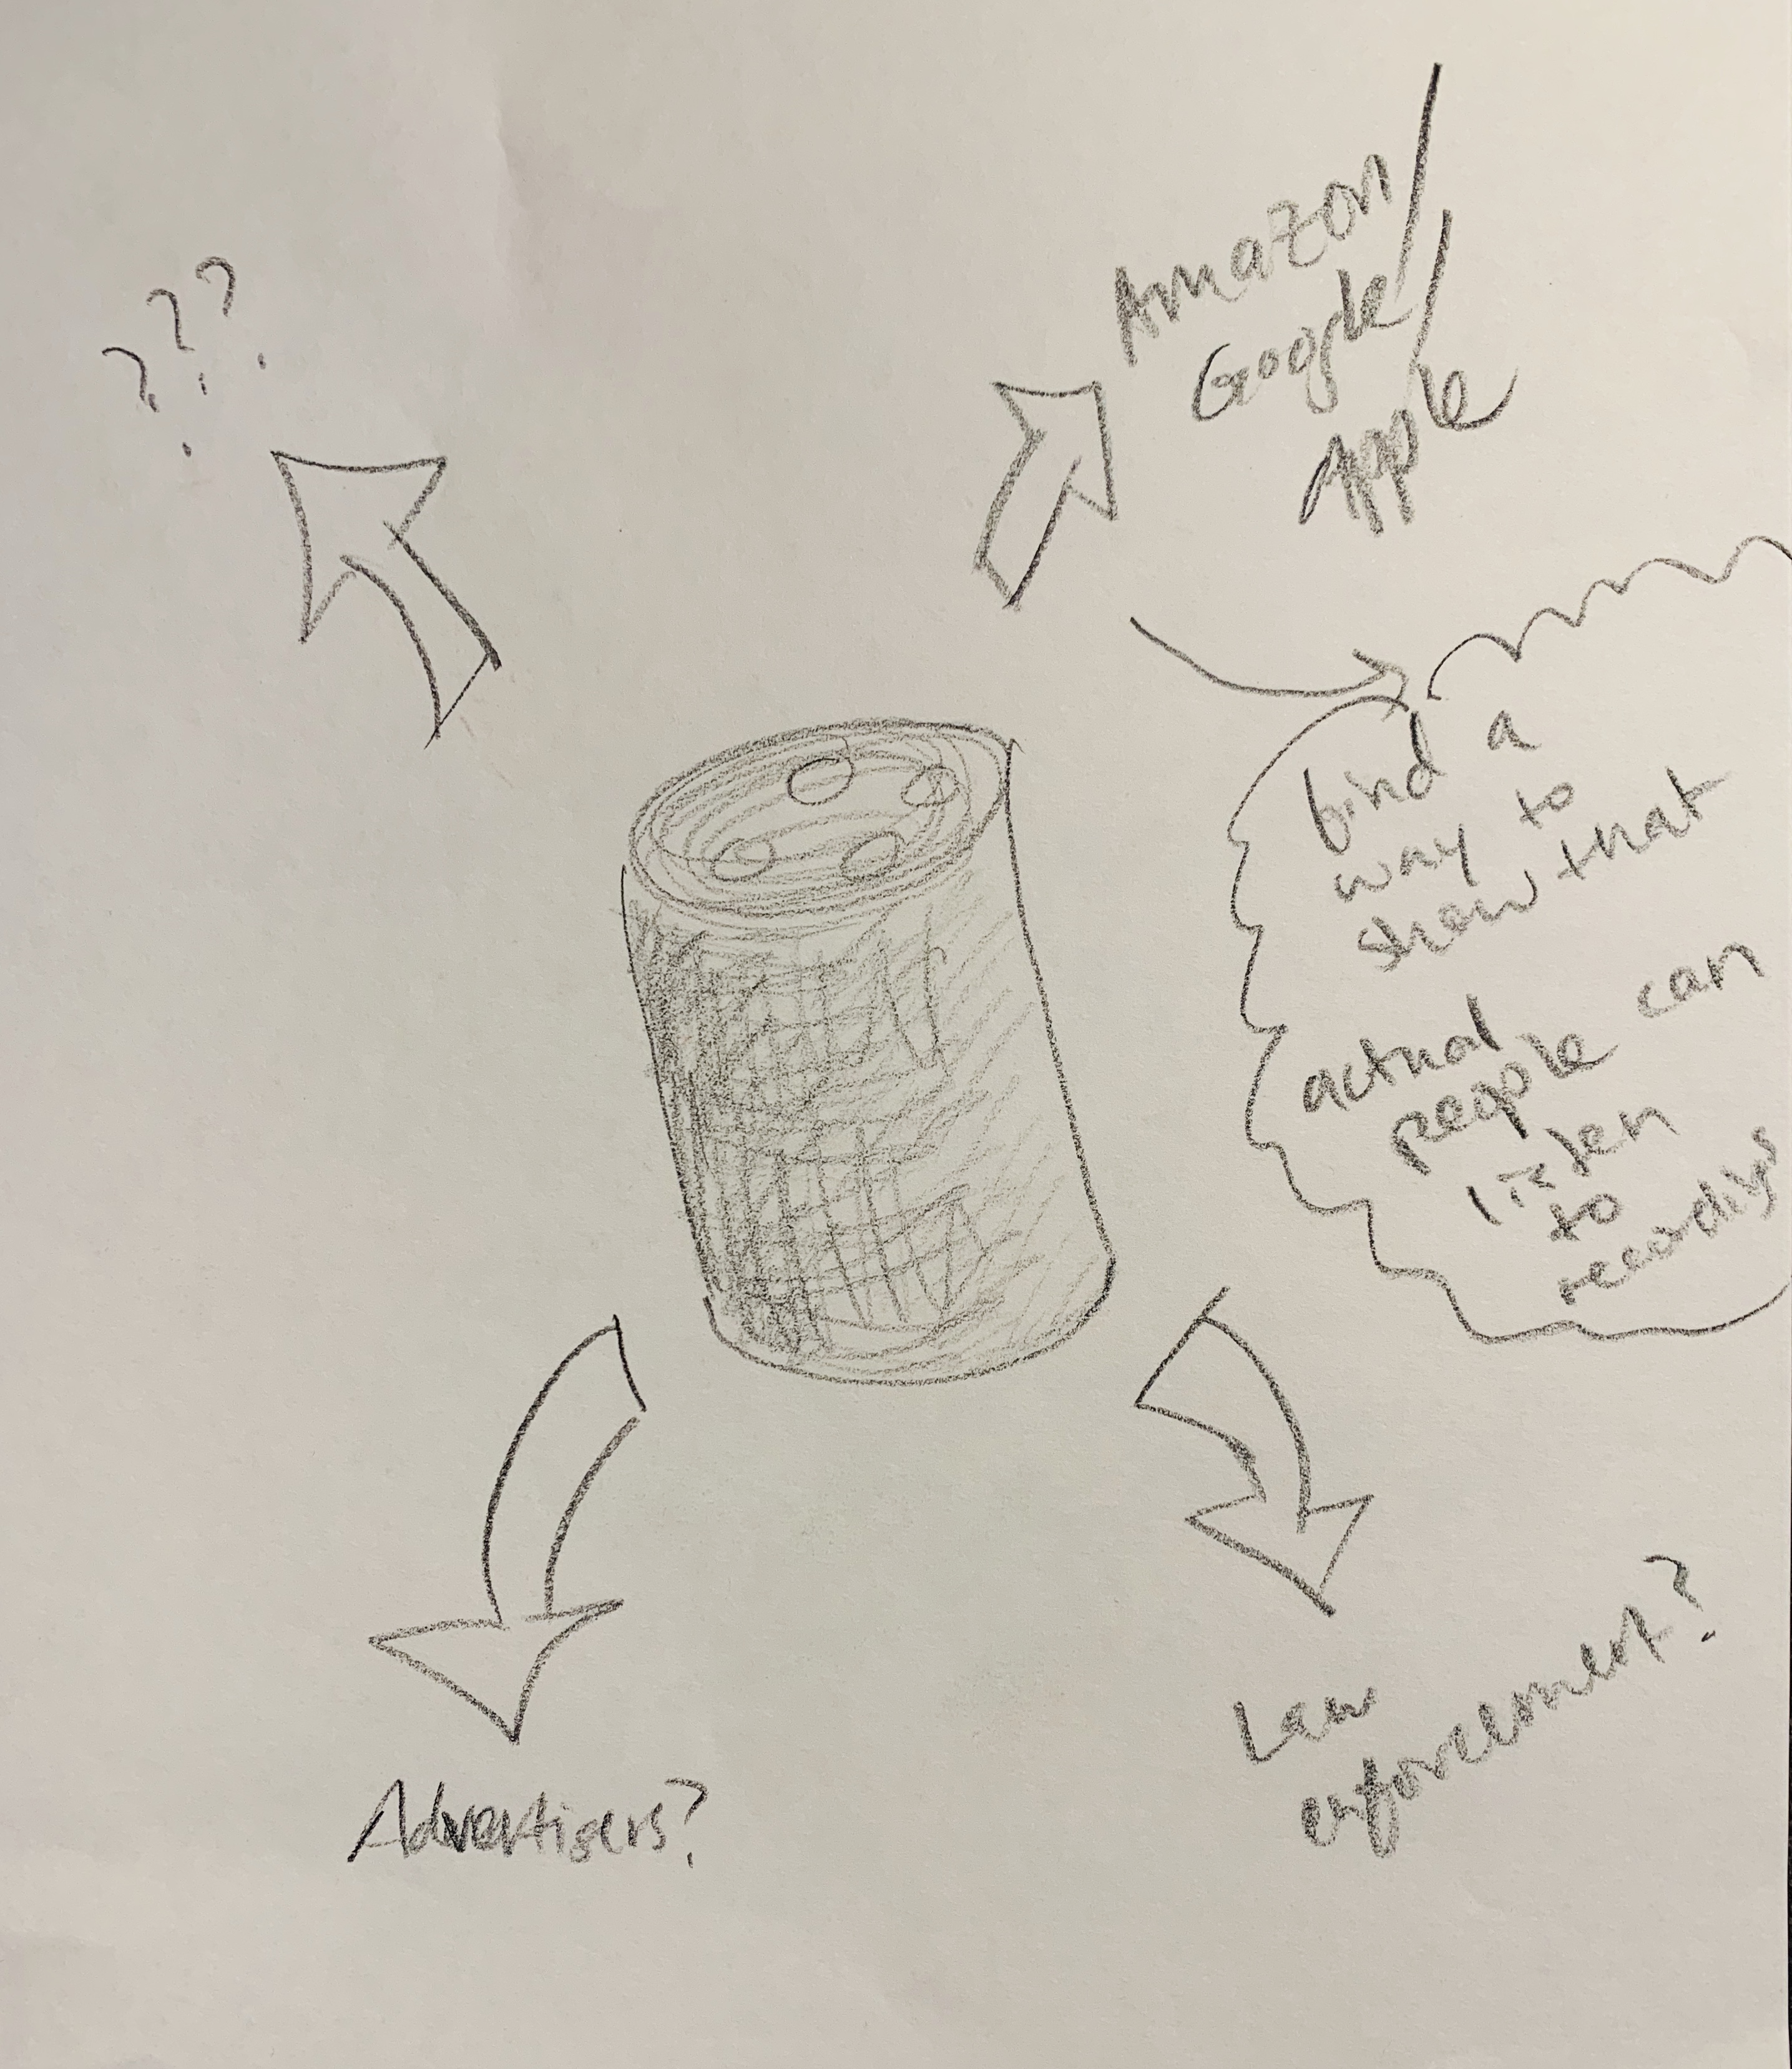 ???
Amazon/
Google/
Apple
find a
way to
show that
actual
people can
listen
to
recordings
Advertisers?
Law
enforcement?